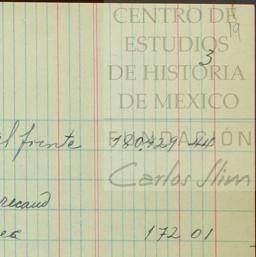 CENTRO DE
19
ESTUDIOS
3
DE HISTORIA
DE MEXICO
al frente 180,929 44
FUNDACIÓN
Carlos Slim
recaud
172 01